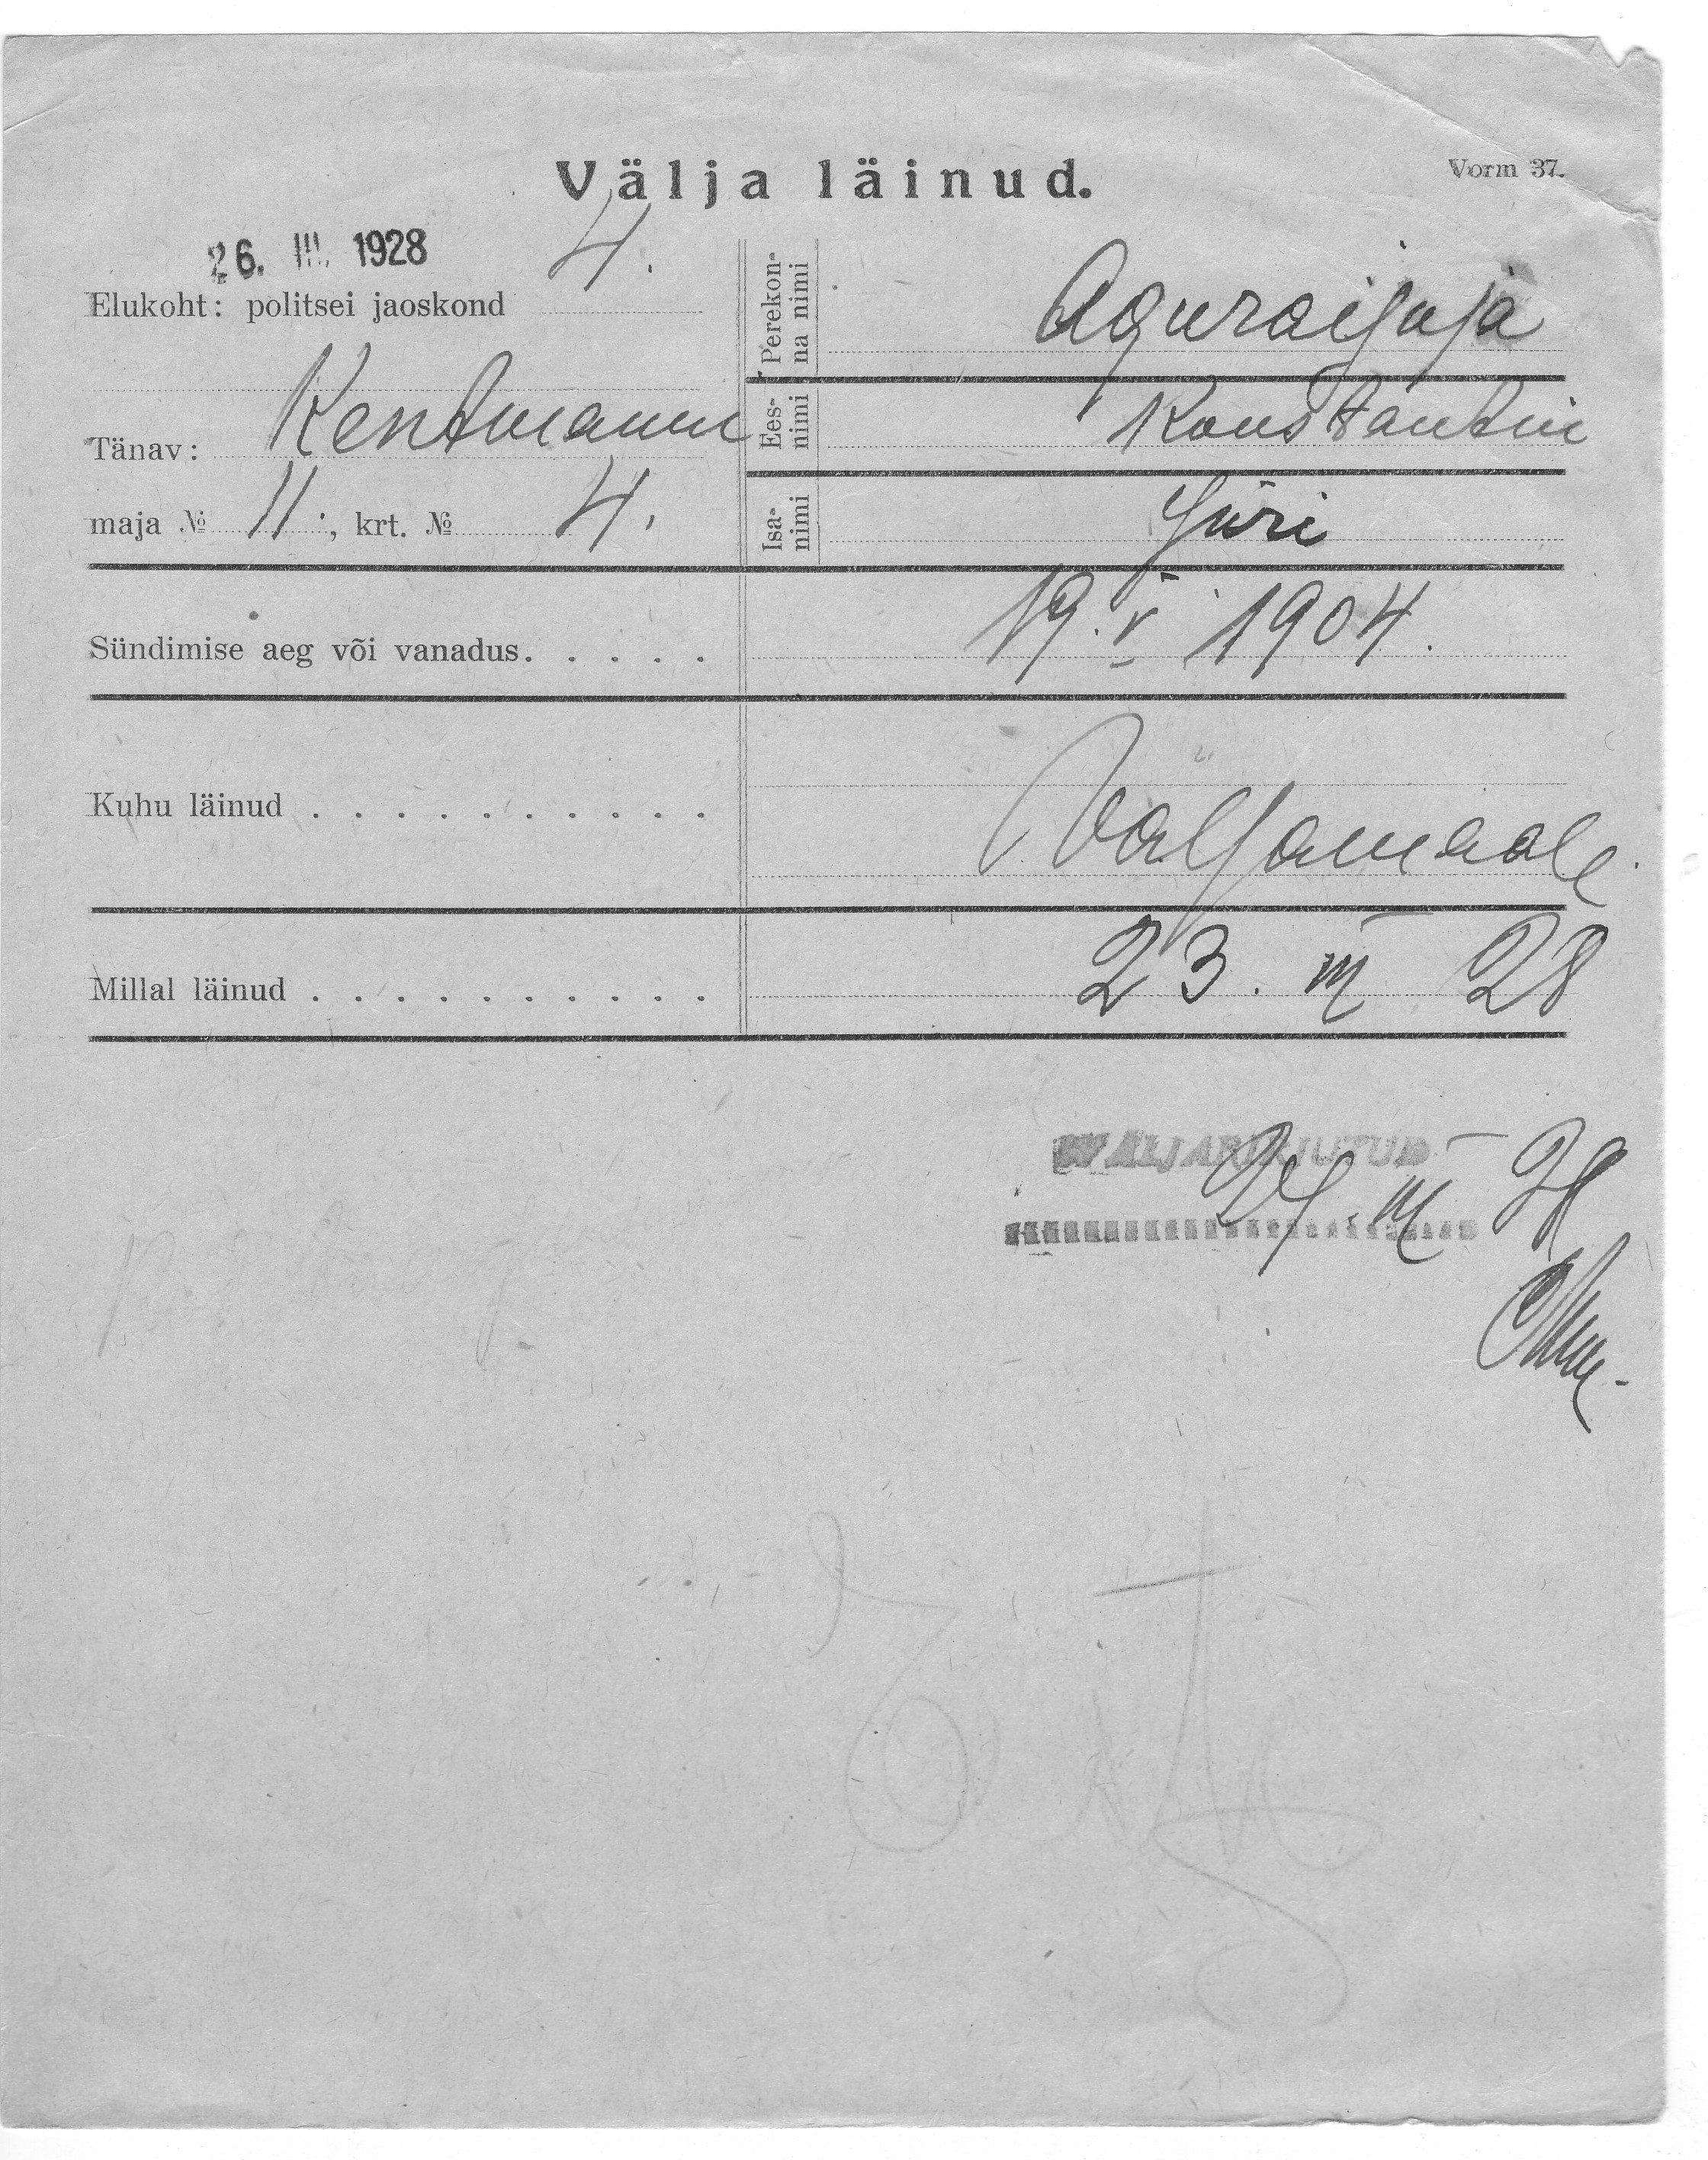 Välja läinud.
Vorm 37.
26. III. 1928
Elukoht: politsei jaoskond 4.
Tänav: Kentmanni
maja № 11., krt. № 4.
Perekon-
na nimi
Aguraijuja
Ees-
nimi
Konstantin
Isa-
nimi
Jüri
Sündimise aeg või vanadus. . . . . 19. V 1904.
Kuhu läinud . . . . . . . . . . Väljamaale.
Millal läinud . . . . . . . . . . 23. III 28
WÄLJAKIRJUTUD
24. III 28